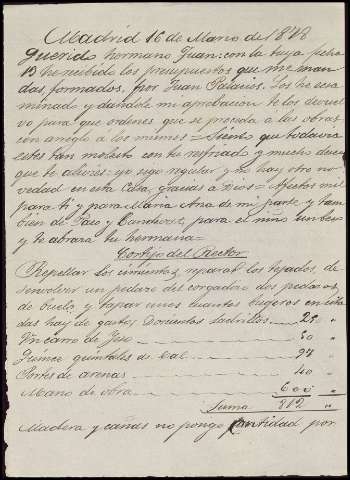 Madrid 16 de Marzo de 1878
Querido hermano Juan: con la tuya fecha
13 he recibido los presupuestos que me man
das, formados, por Juan Palacios. Los he exa
minado y dandole mi aprobacion te los devuel
vo para que ordenes que se proceda a las obras
con arreglo á los mismos = Siento que todavia
estes tan molesto con tu resfriado y mucho deseo
que te alivies: yo sigo regular y no hay otra no
vedad en esta Casa, gracias a Dios = Afectos mil
para ti y para Maria Ana de mi parte y tam
bien de Paco y para el niño un beso
y te abraza tu hermana =
Cortijo del Rector
Repellar los cimientos, reparar los tejados, de
senvolver un pedazo del corgador dos pedazos
de suelo, y tapar unos cuantos ugeros en
das hay de gastos Doscientos ladrillos 25 "
Un carro de Yeso 50 "
Quince quintales de cal 97 "
Portes de arenas 40 "
Mano de obra 600 "
Suma 812 "
Madera y cañas no pongo cantidad por